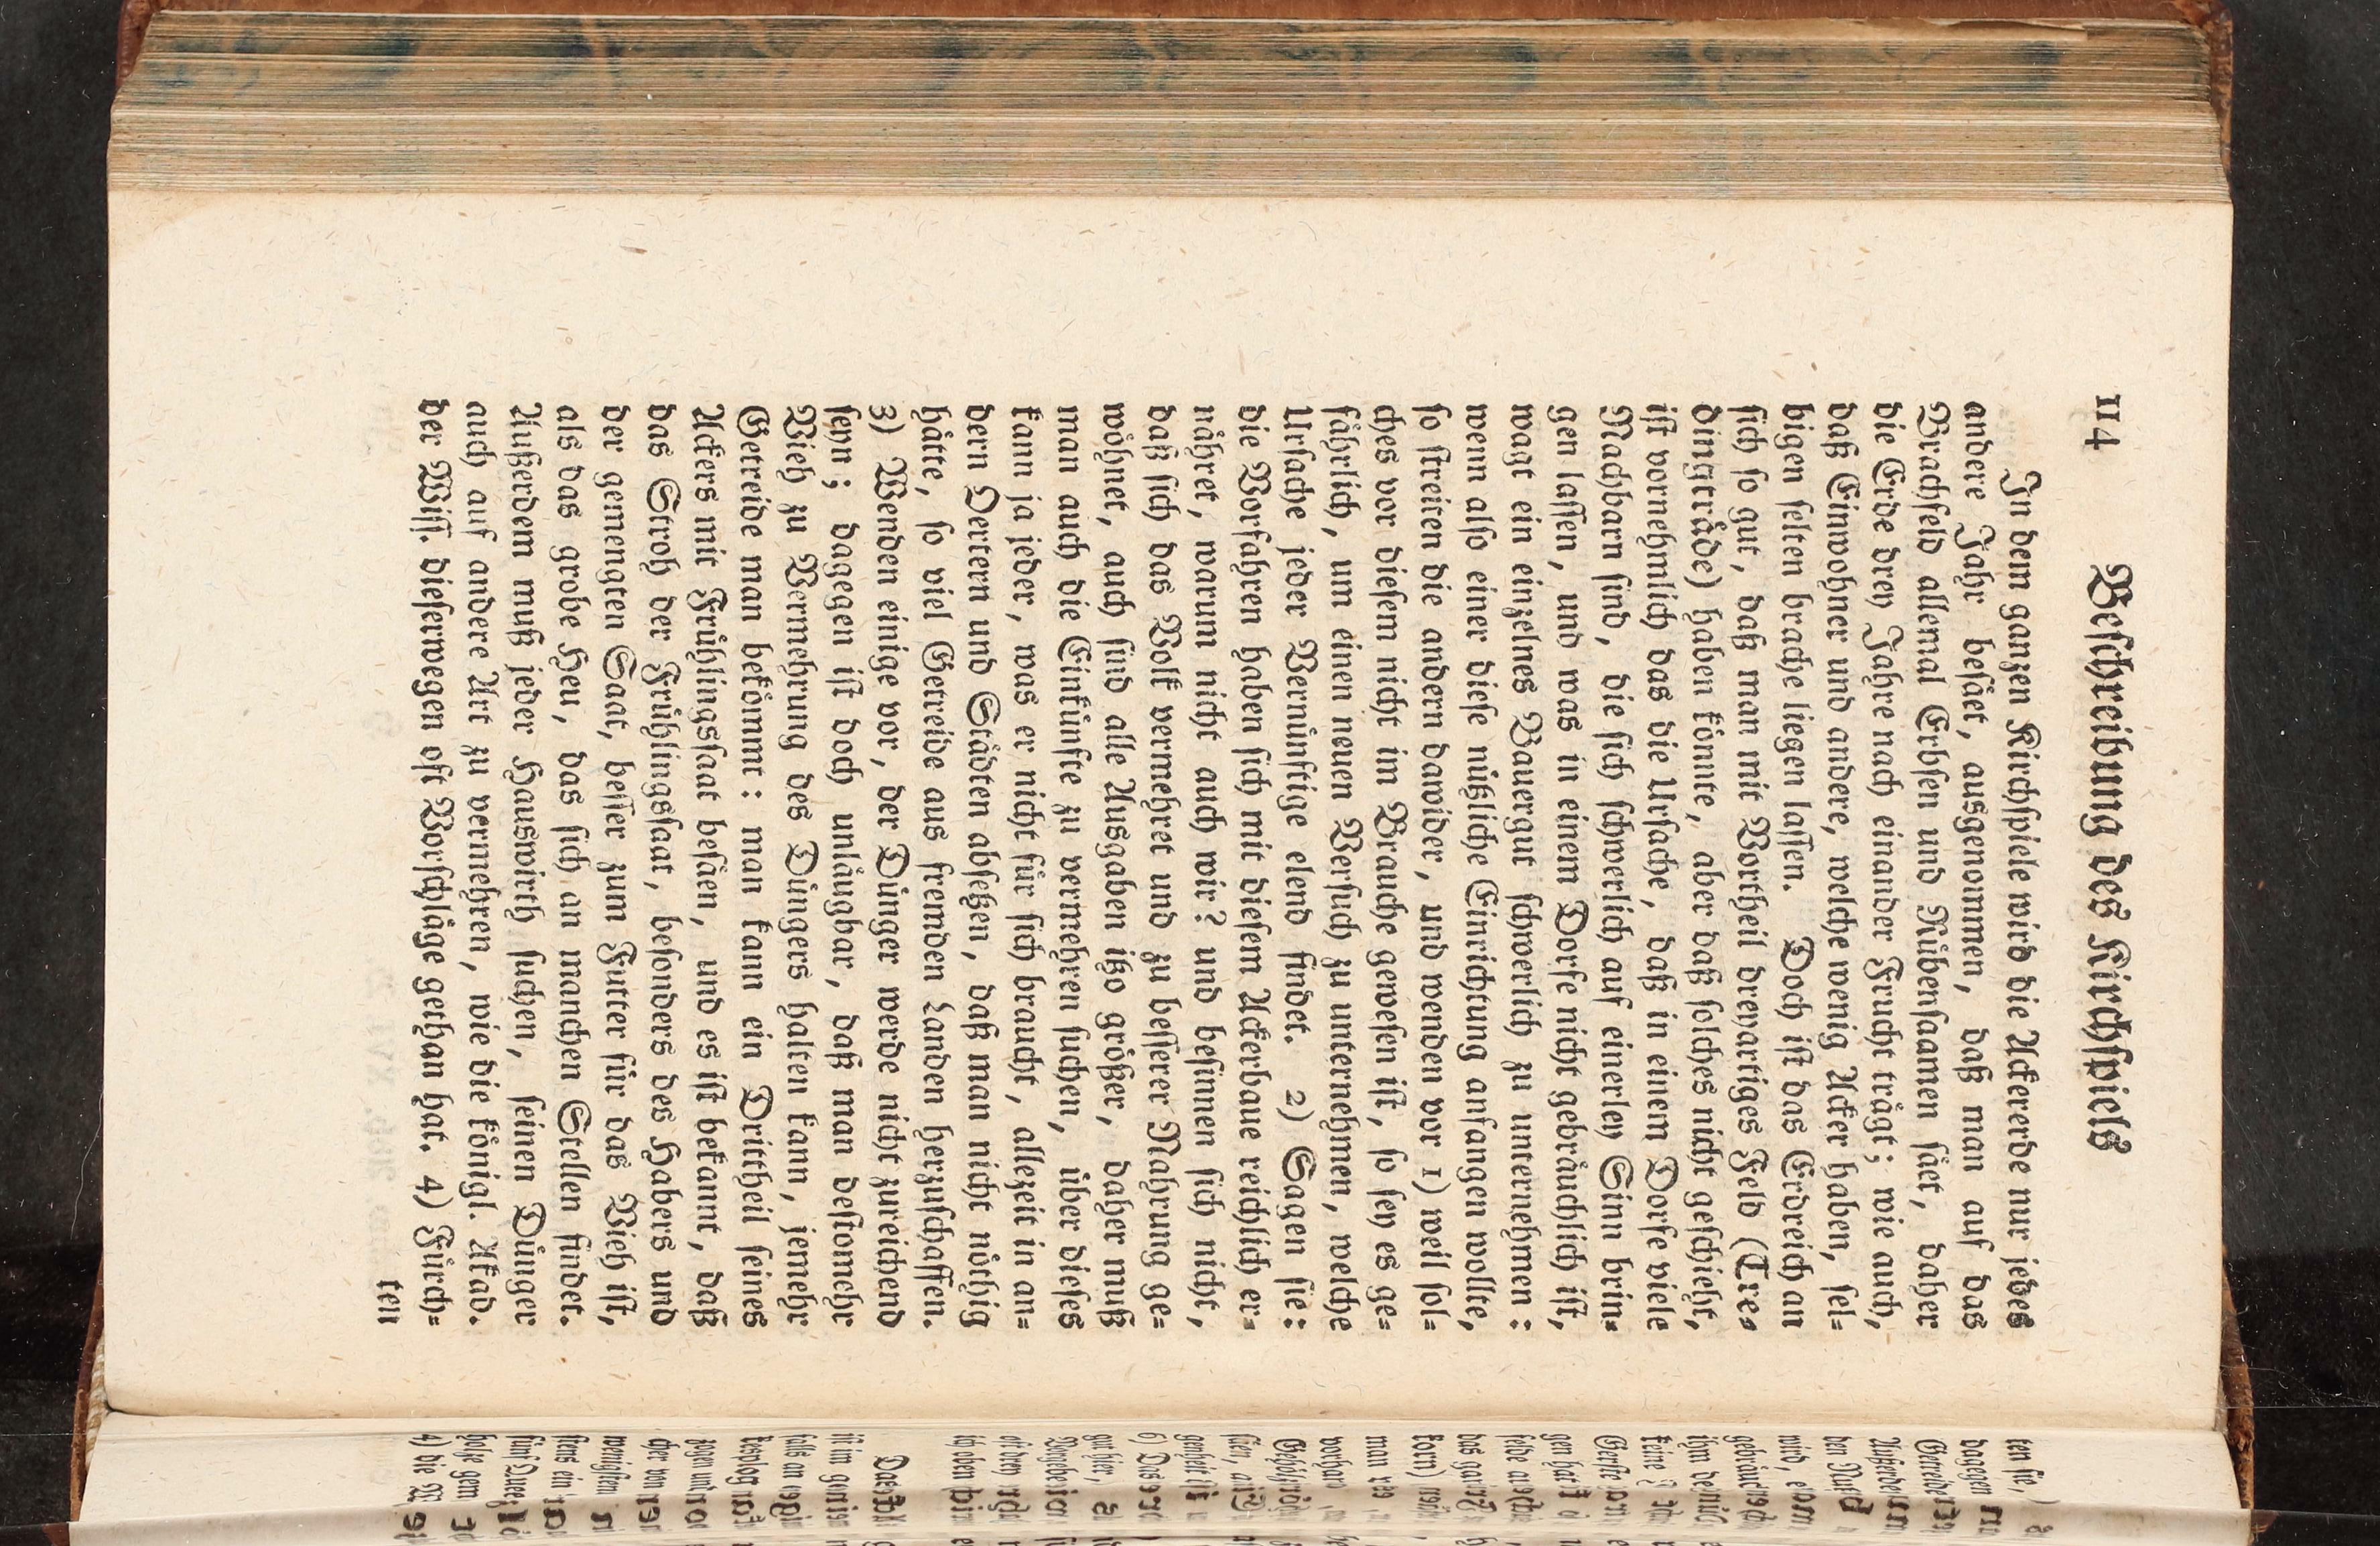 114 Beſchreibung des Kirchſpiels
In dem ganzen Kirchſpiele wird die Ackererde nur jedes
andere Jahr beſäet, ausgenommen, daß man auf das
Brachfeld allemal Erbſen und Rübenſaamen ſäet, daher
die Erde drey Jahre nach einander Frucht trägt; wie auch,
daß Einwohner und andere, welche wenig Acker haben, ſel-
bigen ſelten brache liegen laſſen. Doch iſt das Erdreich an
ſich ſo gut, daß man mit Vortheil dreyartiges Feld (Tre-
dingträde) haben könnte, aber daß ſolches nicht geſchieht,
iſt vornehmlich das die Urſache, daß in einem Dorfe viele
Nachbarn ſind, die ſich ſchwerlich auf einerley Sinn brin-
gen laſſen, und was in einem Dorfe nicht gebräuchlich iſt,
wagt ein einzelnes Bauergut ſchwerlich zu unternehmen:
wenn alſo einer dieſe nützliche Einrichtung anfangen wollte,
ſo ſtreiten die andern dawider, und wenden vor 1) weil ſol-
ches vor dieſem nicht im Brauche geweſen iſt, ſo ſey es ge-
fährlich, um einen neuen Verſuch zu unternehmen, welche
Urſache jeder Vernünftige elend findet. 2) Sagen ſie:
die Vorfahren haben ſich mit dieſem Ackerbaue reichlich er-
nähret, warum nicht auch wir? und beſinnen ſich nicht,
daß ſich das Volk vermehret und zu beſſerer Nahrung ge-
wöhnet, auch ſind alle Ausgaben itzo größer, daher muß
man auch die Einkünfte zu vermehren ſuchen, über dieſes
kann ja jeder, was er nicht für ſich braucht, allezeit in an-
dern Oertern und Städten abſetzen, daß man nicht nöthig
hätte, ſo viel Getreide aus fremden Landen herzuſchaffen.
3) Wenden einige vor, der Dünger werde nicht zureichend
ſeyn; dagegen iſt doch unläugbar, daß man deſtomehr
Vieh zu Vermehrung des Düngers halten kann, jemehr
Getreide man bekömmt: man kann ein Drittheil ſeines
Ackers mit Frühlingsſaat beſäen, und es iſt bekannt, daß
das Stroh der Frühlingsſaat, beſonders des Habers und
der gemengten Saat, beſſer zum Futter für das Vieh iſt,
als das grobe Heu, das ſich an manchen Stellen findet.
Außerdem muß jeder Hauswirth ſuchen, ſeinen Dünger
auch auf andere Art zu vermehren, wie die königl. Akad.
der Wiſſ. dieſerwegen oft Vorſchläge gethan hat. 4) Fürch-
ten